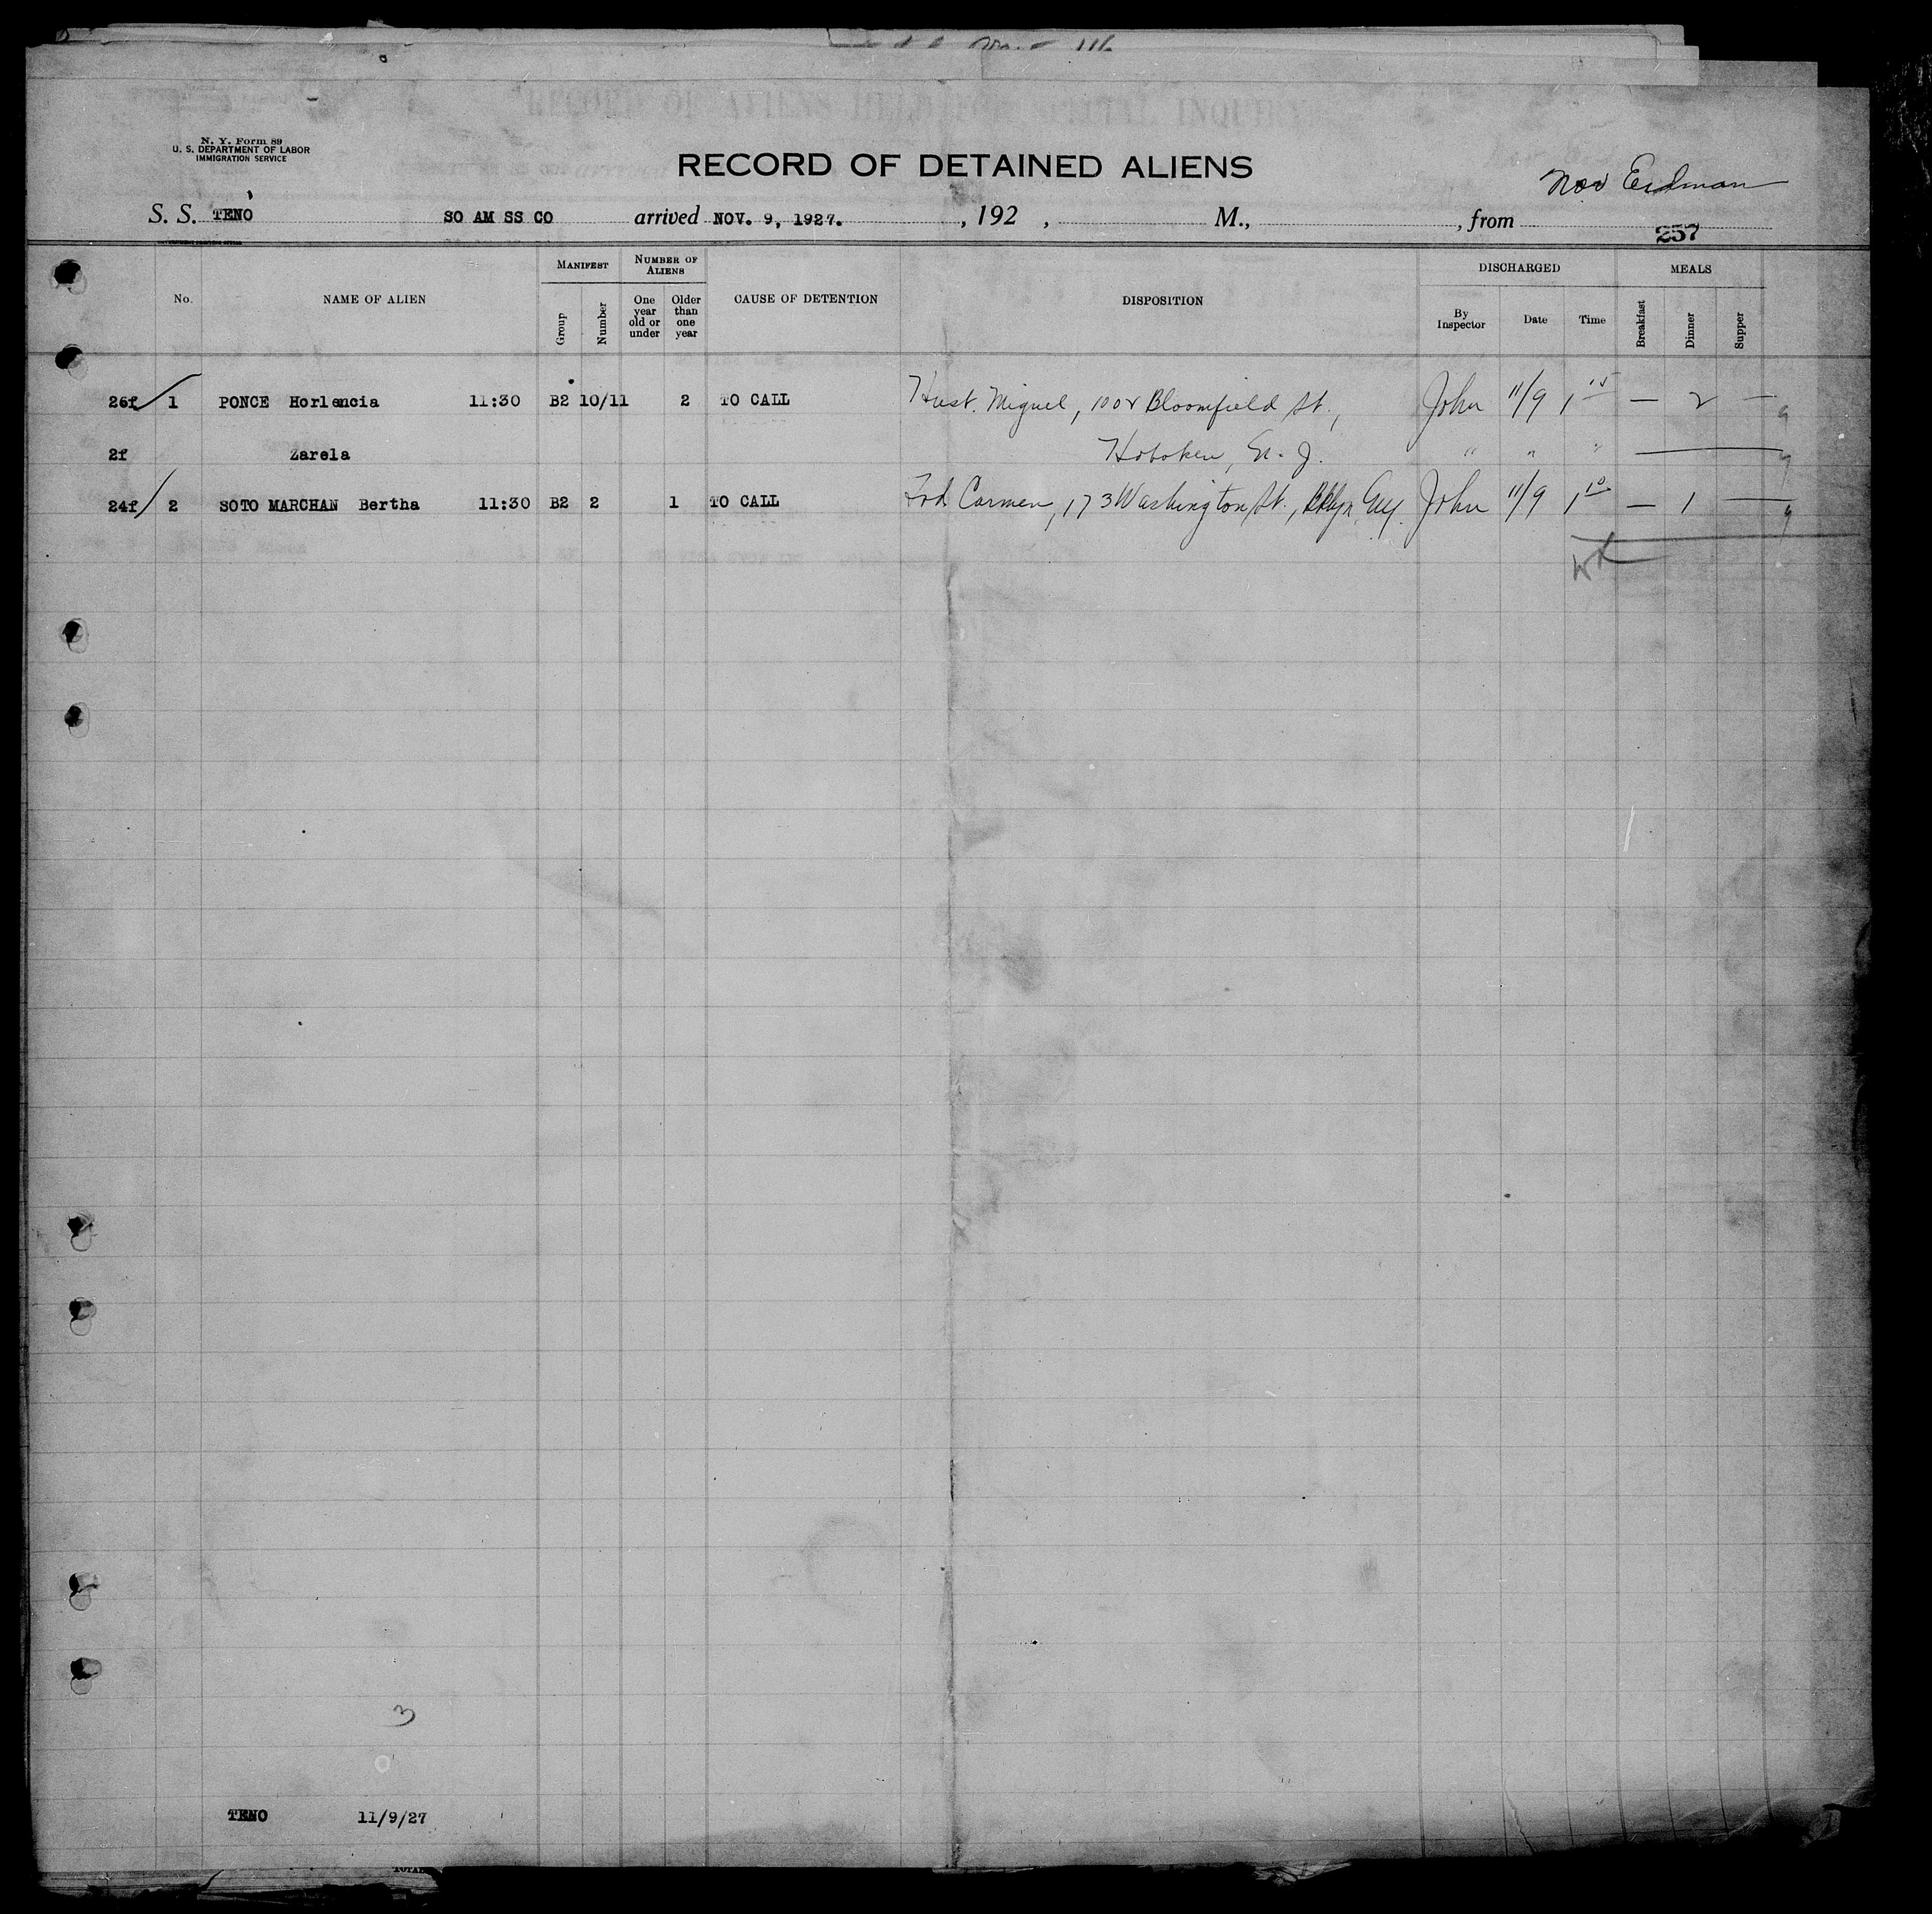 RECORD OF ALIENS HELD FOR SPECIAL INQUIRY
N. Y. Form 89
U. S. DEPARTMENT OF LABOR
IMMIGRATION SERVICE
RECORD OF DETAINED ALIENS
Erdman
S. S. TENO SO AM SS CO arrived NOV. 9, 1927. , 192 , M., , from
257
No. NAME OF ALIEN MANIFEST Group Number NUMBER OF ALIENS One year old or under Older than one year CAUSE OF DETENTION DISPOSITION DISCHARGED By Inspector Date Time MEALS Breakfast Dinner Supper
26f 1 PONCE Horlencia 11:30 B2 10/11 2 TO CALL Hust. Miguel, 1002 Bloomfield St., John 11/9 1 15 — 2 —
2f Zarela Hoboken, N. J. " " "
24f 2 SOTO MARCHAN Bertha 11:30 B2 2 1 TO CALL Carmen, 173 Washington St., Bklyn, NY. John 11/9 1 10 — 1 —
3
0
TENO 11/9/27